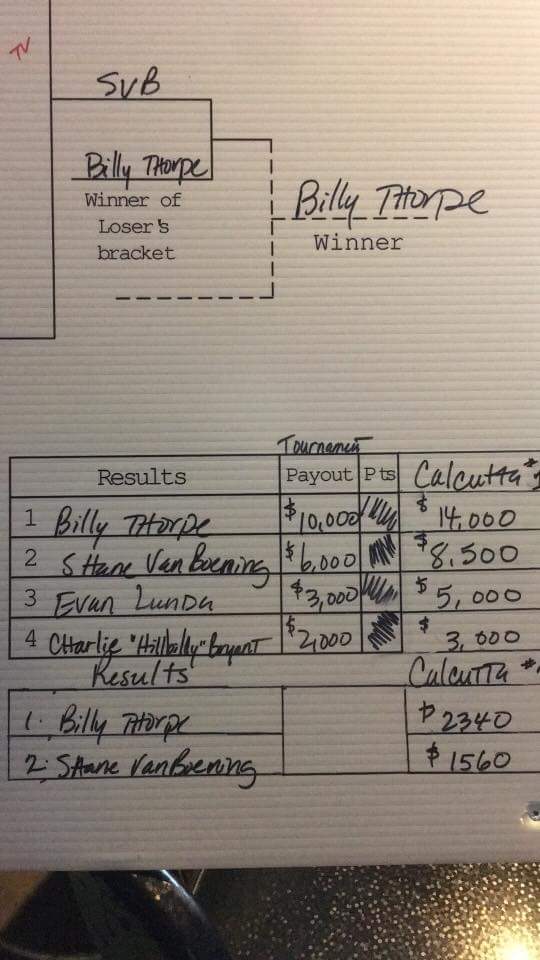 TV
SVB
Billy THorpe
Winner of
Loser's
bracket
Billy THorpe
Winner
Tournament
Results Payout Pts Calcutta #1
1 Billy THorpe $10,000 $14,000
2 SHane Van Boening $6,000 $8,500
3 Evan Lunda $3,000 $5,000
4 CHarlie "Hillbilly" Bryant $2,000 $3,000
Results Calcutta #
1. Billy THorpe $2340
2. SHane Van Boening $1560